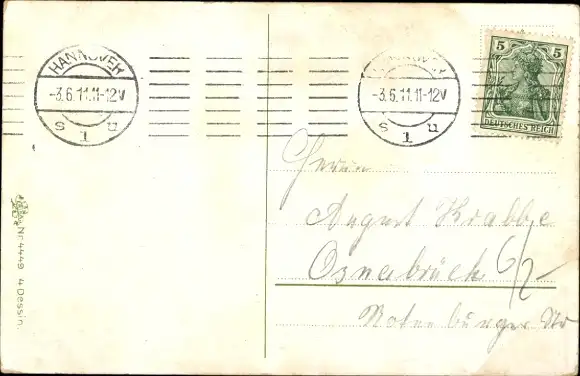 HANNOVER
-3.6.11.11-12V
n 1 s
HANNOVER
-3.6.11.11-12V
n 1 s
5 5
DEUTSCHES REICH
Herrn
August Krabbe
Osnabrück
Rotenburger Str
Nr. 4449 4 Dessin.